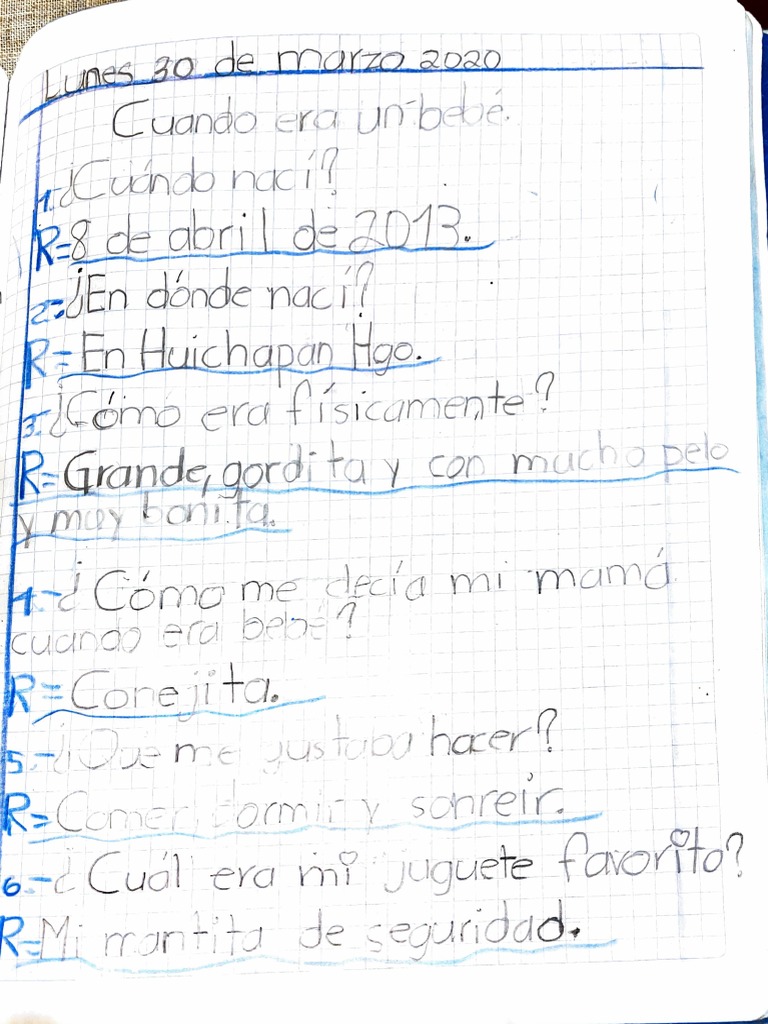 Lunes 30 de marzo 2020
Cuando era un bebé.
1.-¿Cuándo nací?
R=8 de abril de 2013.
2.-¿En dónde nací?
R=En Huichapan Hgo.
3.-¿Cómo era físicamente?
R=Grande, gordita y con mucho pelo
y muy bonita.
4.-¿Cómo me decía mi mamá
cuando era bebé?
R=Conejita.
5.-¿Que me gustaba hacer?
R=Comer, dormir y sonreír.
6.-¿Cuál era mi juguete favorito?
R=Mi mantita de seguridad.